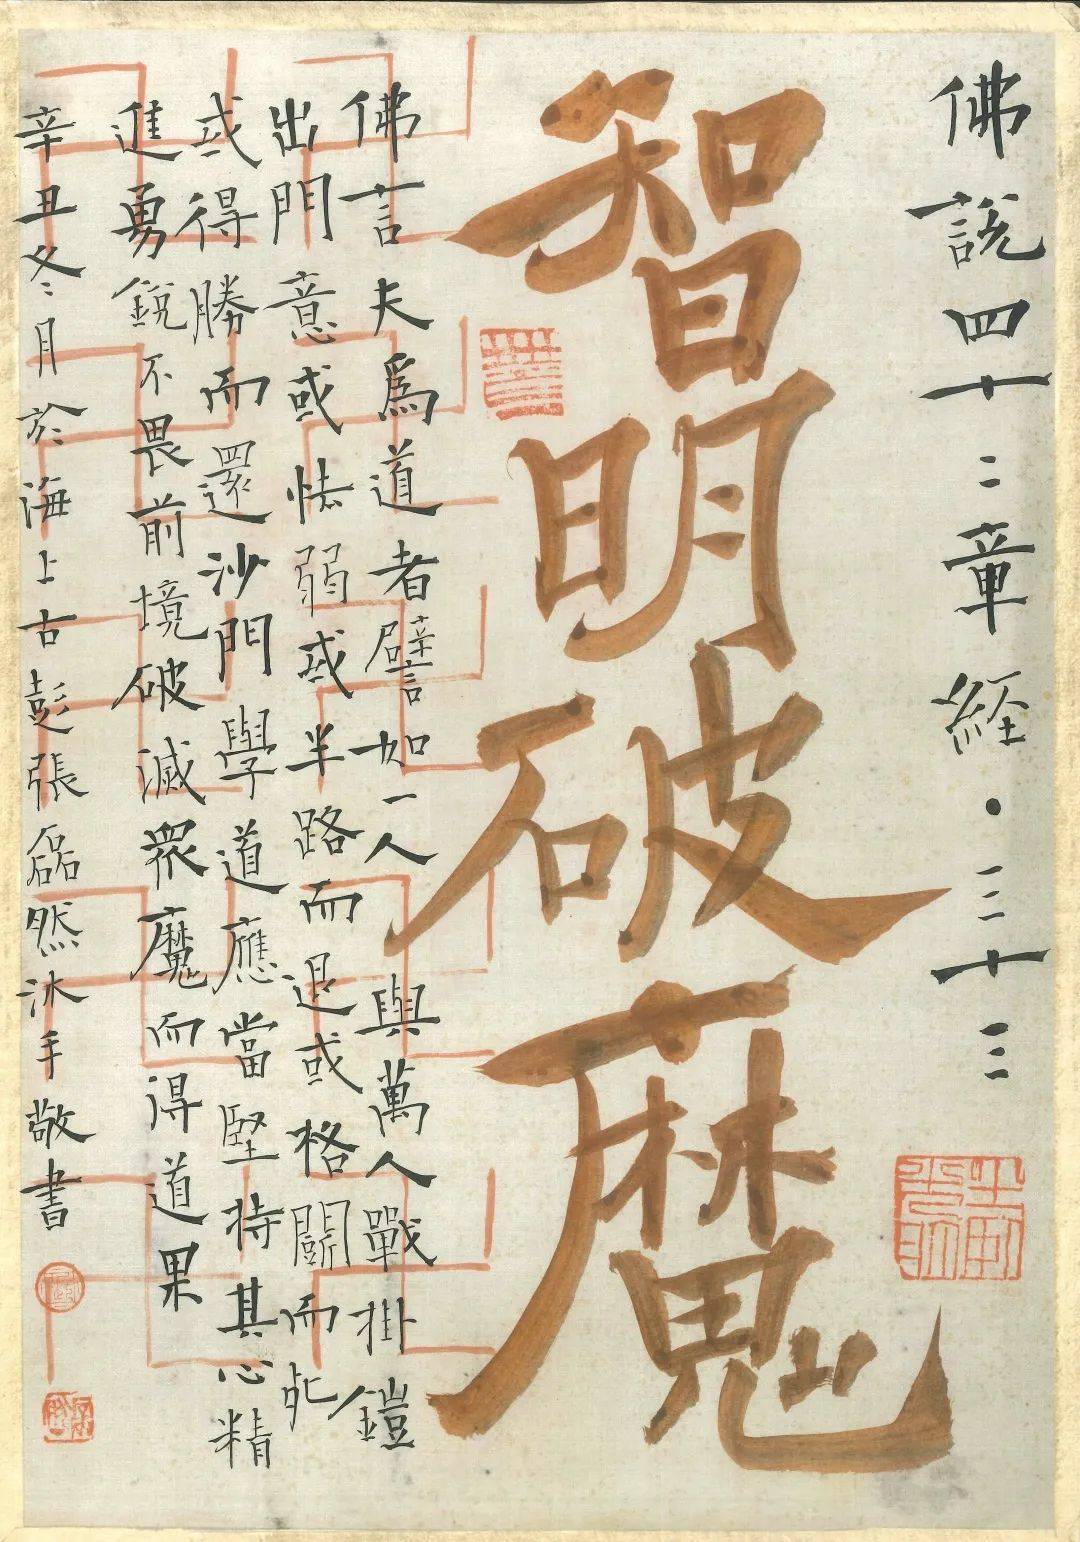 佛說四十二章經·三十三
智明破魔
佛言夫為道者譬如一人與萬人戰掛鎧
出門意或怯弱或半路而退或格鬪而死
或得勝而還沙門學道應當堅持其心精
進勇銳不畏前境破滅眾魔而得道果
辛丑冬月於海上古彭張磊然沐手敬書